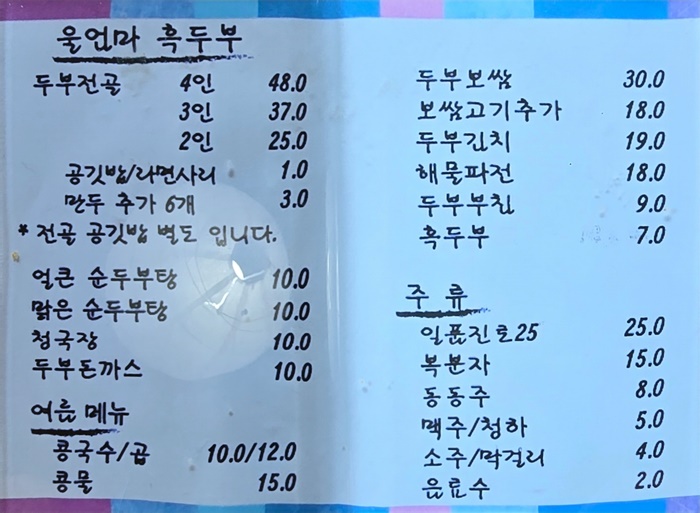 울엄마 흑두부
두부전골 4인 48.0
3인 37.0
2인 25.0
공깃밥/라면사리 1.0
만두 추가 6개 3.0
* 전골 공깃밥 별도 입니다.
얼큰 순두부탕 10.0
맑은 순두부탕 10.0
청국장 10.0
두부돈까스 10.0
여름 메뉴
콩국수/곱 10.0/12.0
콩물 15.0
두부보쌈 30.0
보쌈고기추가 18.0
두부김치 19.0
해물파전 18.0
두부부침 9.0
흑두부 7.0
주 류
일품진로25 25.0
복분자 15.0
동동주 8.0
맥주/청하 5.0
소주/막걸리 4.0
음료수 2.0